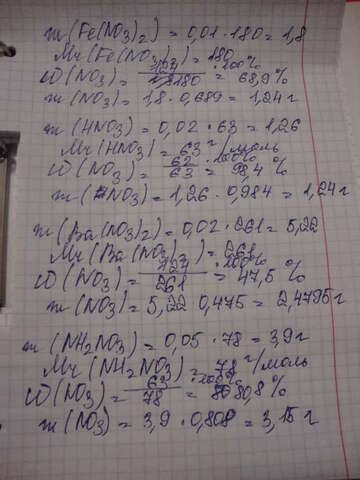 m (Fe(NO3)2) = 0,01 · 180 = 1,8
Mr (Fe(NO3)2) = 180
ω (NO3) = 124 · 100% / 180 = 68,9 %
m (NO3) = 1,8 · 0,689 = 1,24 г
m (HNO3) = 0,02 · 63 = 1,26
Mr (HNO3) = 63 г/моль
ω (NO3) = 62 · 100% / 63 = 98,4 %
m (HNO3) = 1,26 · 0,984 = 1,24 г
m (Ba(NO3)2) = 0,02 · 261 = 5,22
Mr (Ba(NO3)2) = 261
ω (NO3) = 124 · 100% / 261 = 47,5 %
m (NO3) = 5,22 · 0,475 = 2,4795 г
m (NH2NO3) = 0,05 · 78 = 3,9 г
Mr (NH2NO3) = 78 г/моль
ω (NO3) = 63 · 100% / 78 = 80,8 %
m (NO3) = 3,9 · 0,808 = 3,15 г